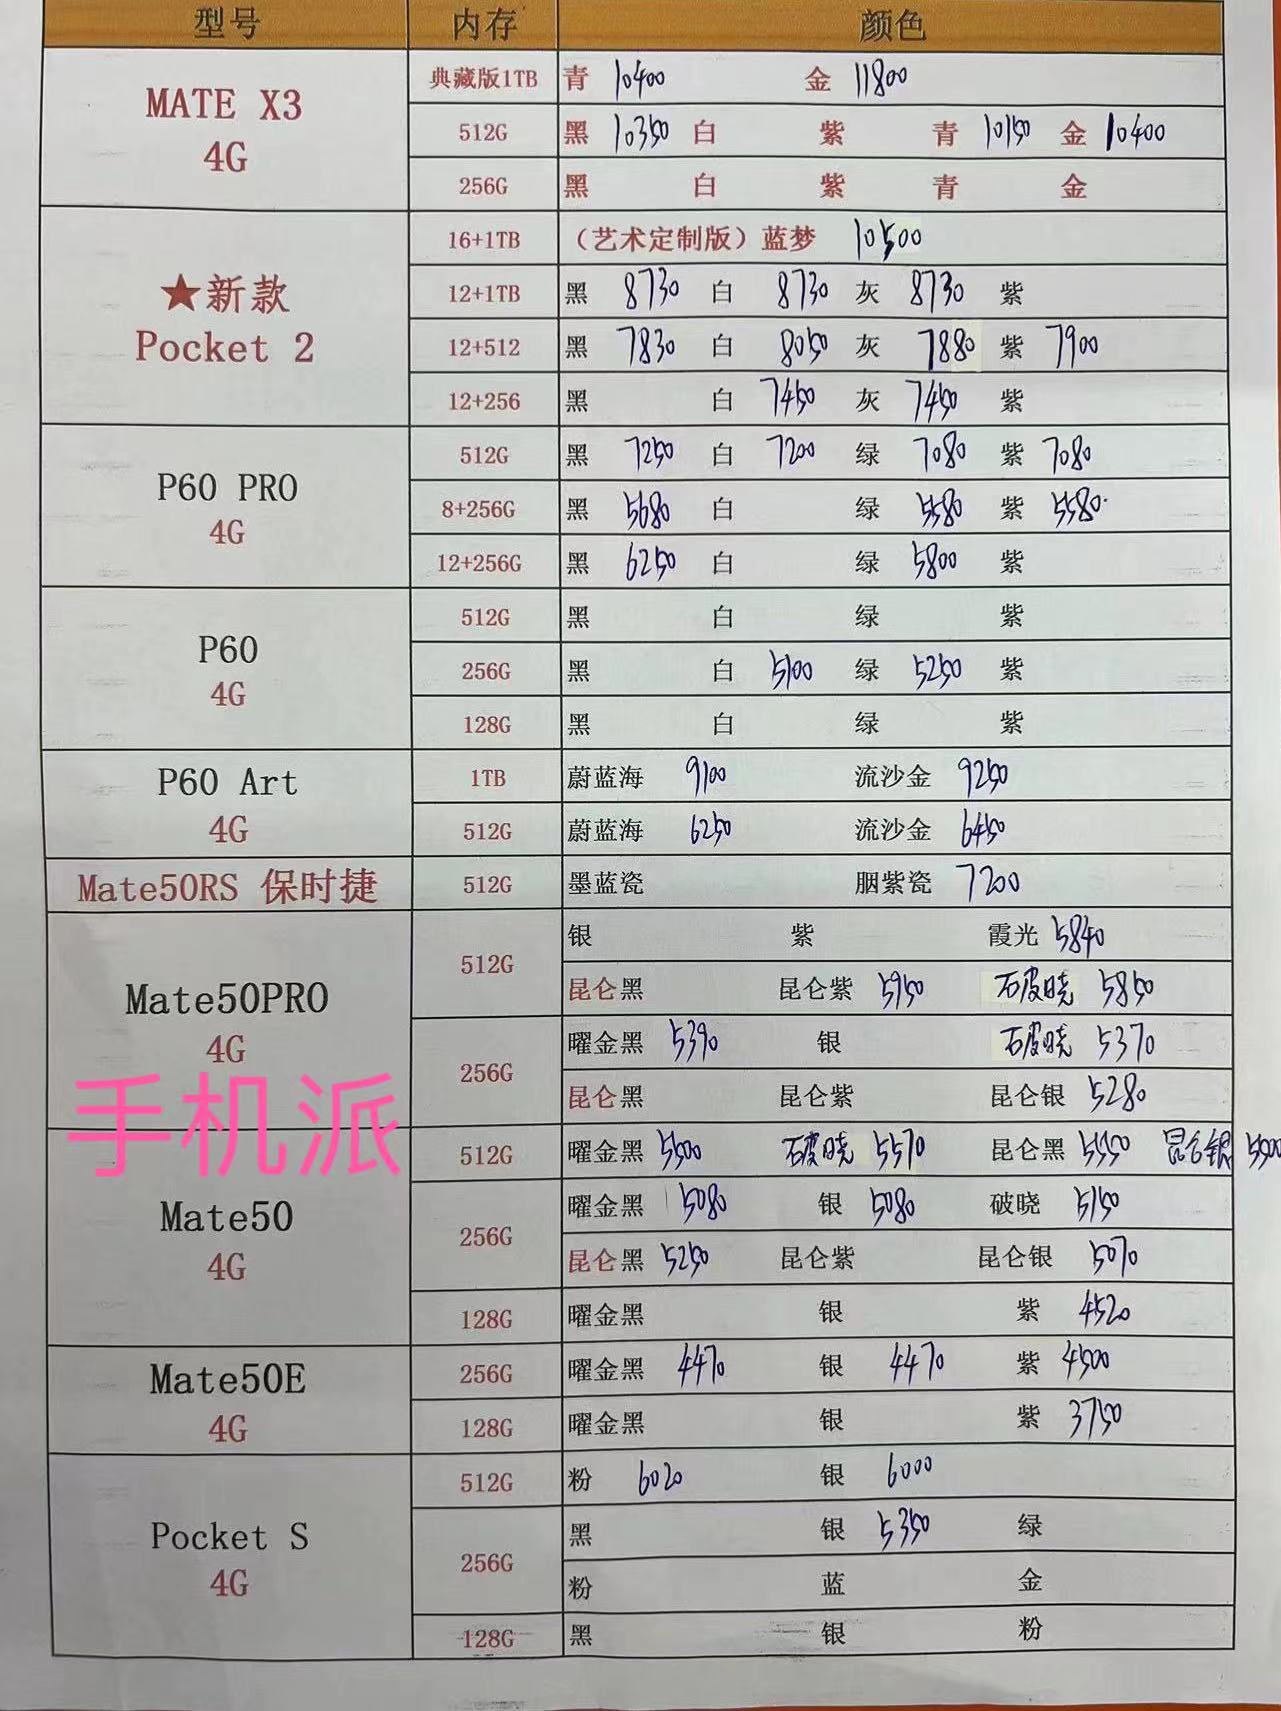 型号 内存 颜色
MATE X3
4G
典藏版1TB 青 10400 金 11800
512G 黑 10350 白 紫 青 10150 金 10400
256G 黑 白 紫 青 金
★新款
Pocket 2
16+1TB （艺术定制版）蓝梦 10500
12+1TB 黑 8730 白 8730 灰 8730 紫
12+512 黑 7830 白 8050 灰 7880 紫 7900
12+256 黑 白 7450 灰 7450 紫
P60 PRO
4G
512G 黑 7250 白 7200 绿 7080 紫 7080
8+256G 黑 5680 白 绿 5580 紫 5580
12+256G 黑 6250 白 绿 5800 紫
P60
4G
512G 黑 白 绿 紫
256G 黑 白 5100 绿 5250 紫
128G 黑 白 绿 紫
P60 Art
4G
1TB 蔚蓝海 9100 流沙金 9250
512G 蔚蓝海 6250 流沙金 6450
Mate50RS 保时捷 512G 墨蓝瓷 胭紫瓷 7200
Mate50PRO
4G
512G 银 紫 霞光 5840
昆仑黑 昆仑紫 5950 破晓 5850
256G 曜金黑 5390 银 破晓 5370
昆仑黑 昆仑紫 昆仑银 5280
手机派
Mate50
4G
512G 曜金黑 5500 破晓 5570 昆仑黑 5550 昆仑银 5500
256G 曜金黑 5080 银 5080 破晓 5150
昆仑黑 5250 昆仑紫 昆仑银 5070
128G 曜金黑 银 紫 4520
Mate50E
4G
256G 曜金黑 4470 银 4470 紫 4500
128G 曜金黑 银 紫 3750
Pocket S
4G
512G 粉 6020 银 6000
256G 黑 银 5350 绿
粉 蓝 金
128G 黑 银 粉